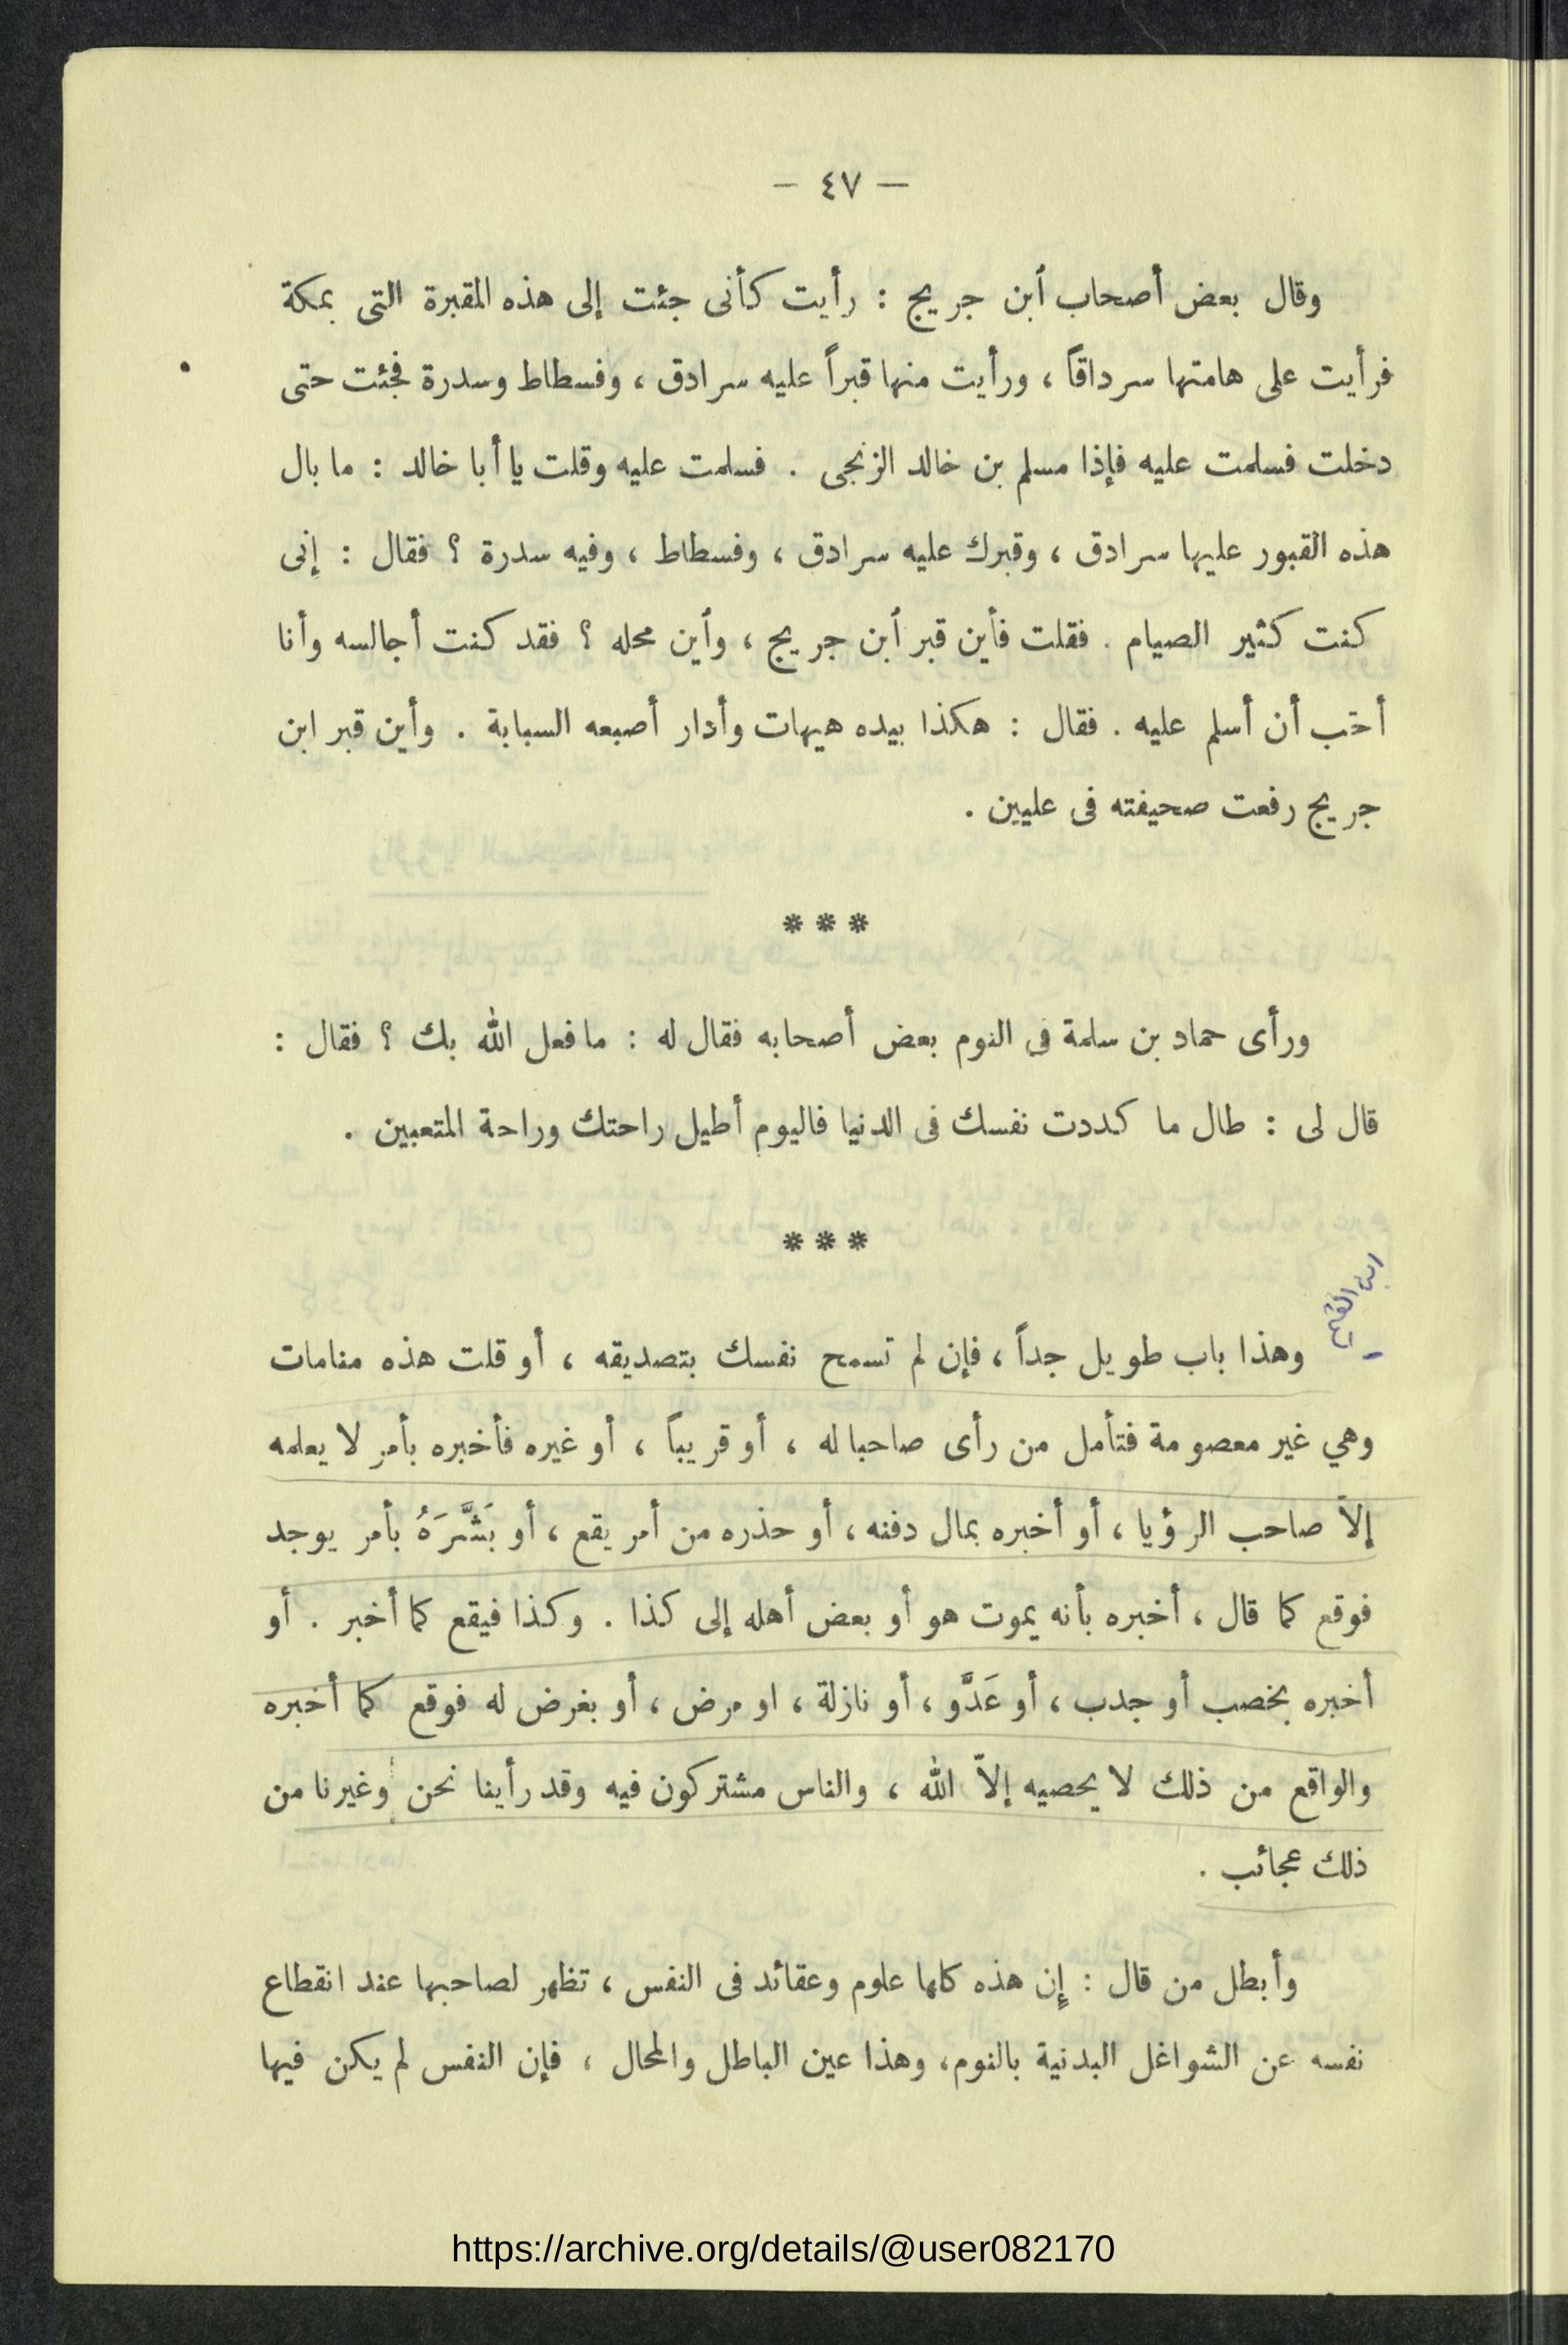 — ٤٧ —
وقال بعض أصحاب أبن جريج : رأيت كأنى جئت إلى هذه المقبرة التى بمكة
فرأيت على هامتها سرداقاً ، ورأيت منها قبراً عليه سرادق ، وفسطاط وسدرة فجئت حتى
دخلت فسلمت عليه فإذا مسلم بن خالد الزنجى . فسلمت عليه وقلت يا أبا خالد : ما بال
هذه القبور عليها سرادق ، وقبرك عليه سرادق ، وفسطاط ، وفيه سدرة ؟ فقال : إنى
كنت كثير الصيام . فقلت فأين قبر أبن جريج ، وأين محله ؟ فقد كنت أجالسه وأنا
أحب أن أسلم عليه . فقال : هكذا بيده هيهات وأدار أصبعه السبابة . وأين قبر ابن
جريج رفعت صحيفته فى عليين .
* * *
ورأى حماد بن سلمة فى النوم بعض أصحابه فقال له : ما فعل الله بك ؟ فقال :
قال لى : طال ما كددت نفسك فى الدنيا فاليوم أطيل راحتك وراحة المتعبين .
* * *
ابن القيم
وهذا باب طويل جداً ، فإن لم تسمح نفسك بتصديقه ، أو قلت هذه منامات
وهي غير معصومة فتأمل من رأى صاحبا له ، أو قريباً ، أو غيره فأخبره بأمر لا يعلمه
إلاّ صاحب الرؤيا ، أو أخبره بمال دفنه ، أو حذره من أمر يقع ، أو بَشَّرَهُ بأمر يوجد
فوقع كما قال ، أخبره بأنه يموت هو أو بعض أهله إلى كذا . وكذا فيقع كما أخبر . أو
أخبره بخصب أو جدب ، أو عَدَّو ، أو نازلة ، او مرض ، أو بغرض له فوقع كما أخبره
والواقع من ذلك لا يحصيه إلاّ الله ، والناس مشتركون فيه وقد رأينا نحن وغيرنا من
ذلك عجائب .
وأبطل من قال : إن هذه كلها علوم وعقائد فى النفس ، تظهر لصاحبها عند انقطاع
نفسه عن الشواغل البدنية بالنوم، وهذا عين الباطل والمحال ، فإن النفس لم يكن فيها
https://archive.org/details/@user082170